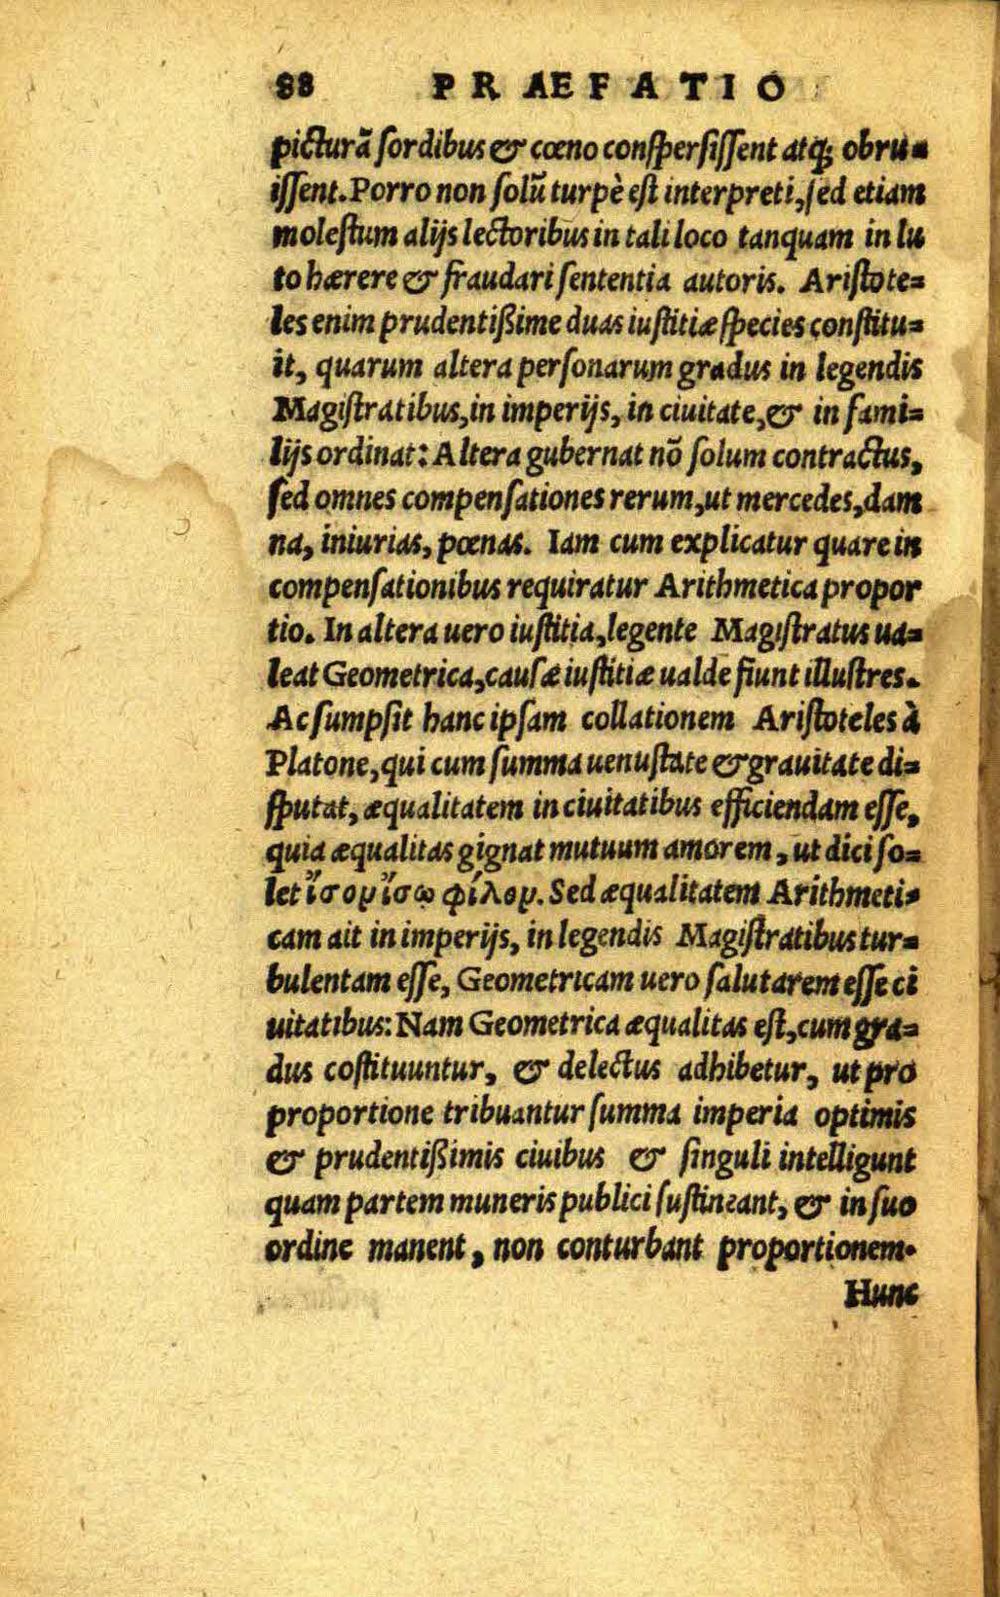 88 PRAEFATIO
picturã sordibus & cœno conspersissent atq; obru=
issent. Porro non solũ turpè est interpreti, sed etiam
molestum alijs lectoribus in tali loco tanquam in lu
to hærere & fraudari sententia autoris. Aristote=
les enim prudentißime duas iustitiæ species constitu=
it, quarum altera personarum gradus in legendis
Magistratibus, in imperijs, in ciuitate, & in fami=
lijs ordinat: Altera gubernat nõ solum contractus,
sed omnes compensationes rerum, ut mercedes, dam
na, iniurias, pœnas. Iam cum explicatur quare in
compensationibus requiratur Arithmetica propor
tio. In altera uero iustitia, legente Magistratus ua=
leat Geometrica, causæ iustitiæ ualde fiunt illustres.
Ac sumpsit hanc ipsam collationem Aristoteles à
Platone, qui cum summa uenustate & grauitate di=
sputat, æqualitatem in ciuitatibus efficiendam esse,
quia æqualitas gignat mutuum amorem, ut dici so=
let ἴσον ἴσῳ φίλον. Sed æqualitatem Arithmeti=
cam ait in imperijs, in legendis Magistratibus tur=
bulentam esse, Geometricam uero salutarem esse ci
uitatibus: Nam Geometrica æqualitas est, cum gra=
dus costituuntur, & delectus adhibetur, ut pro
proportione tribuantur summa imperia optimis
& prudentißimis ciuibus & singuli intelligunt
quam partem muneris publici sustineant, & in suo
ordine manent, non conturbant proportionem.
Hunc